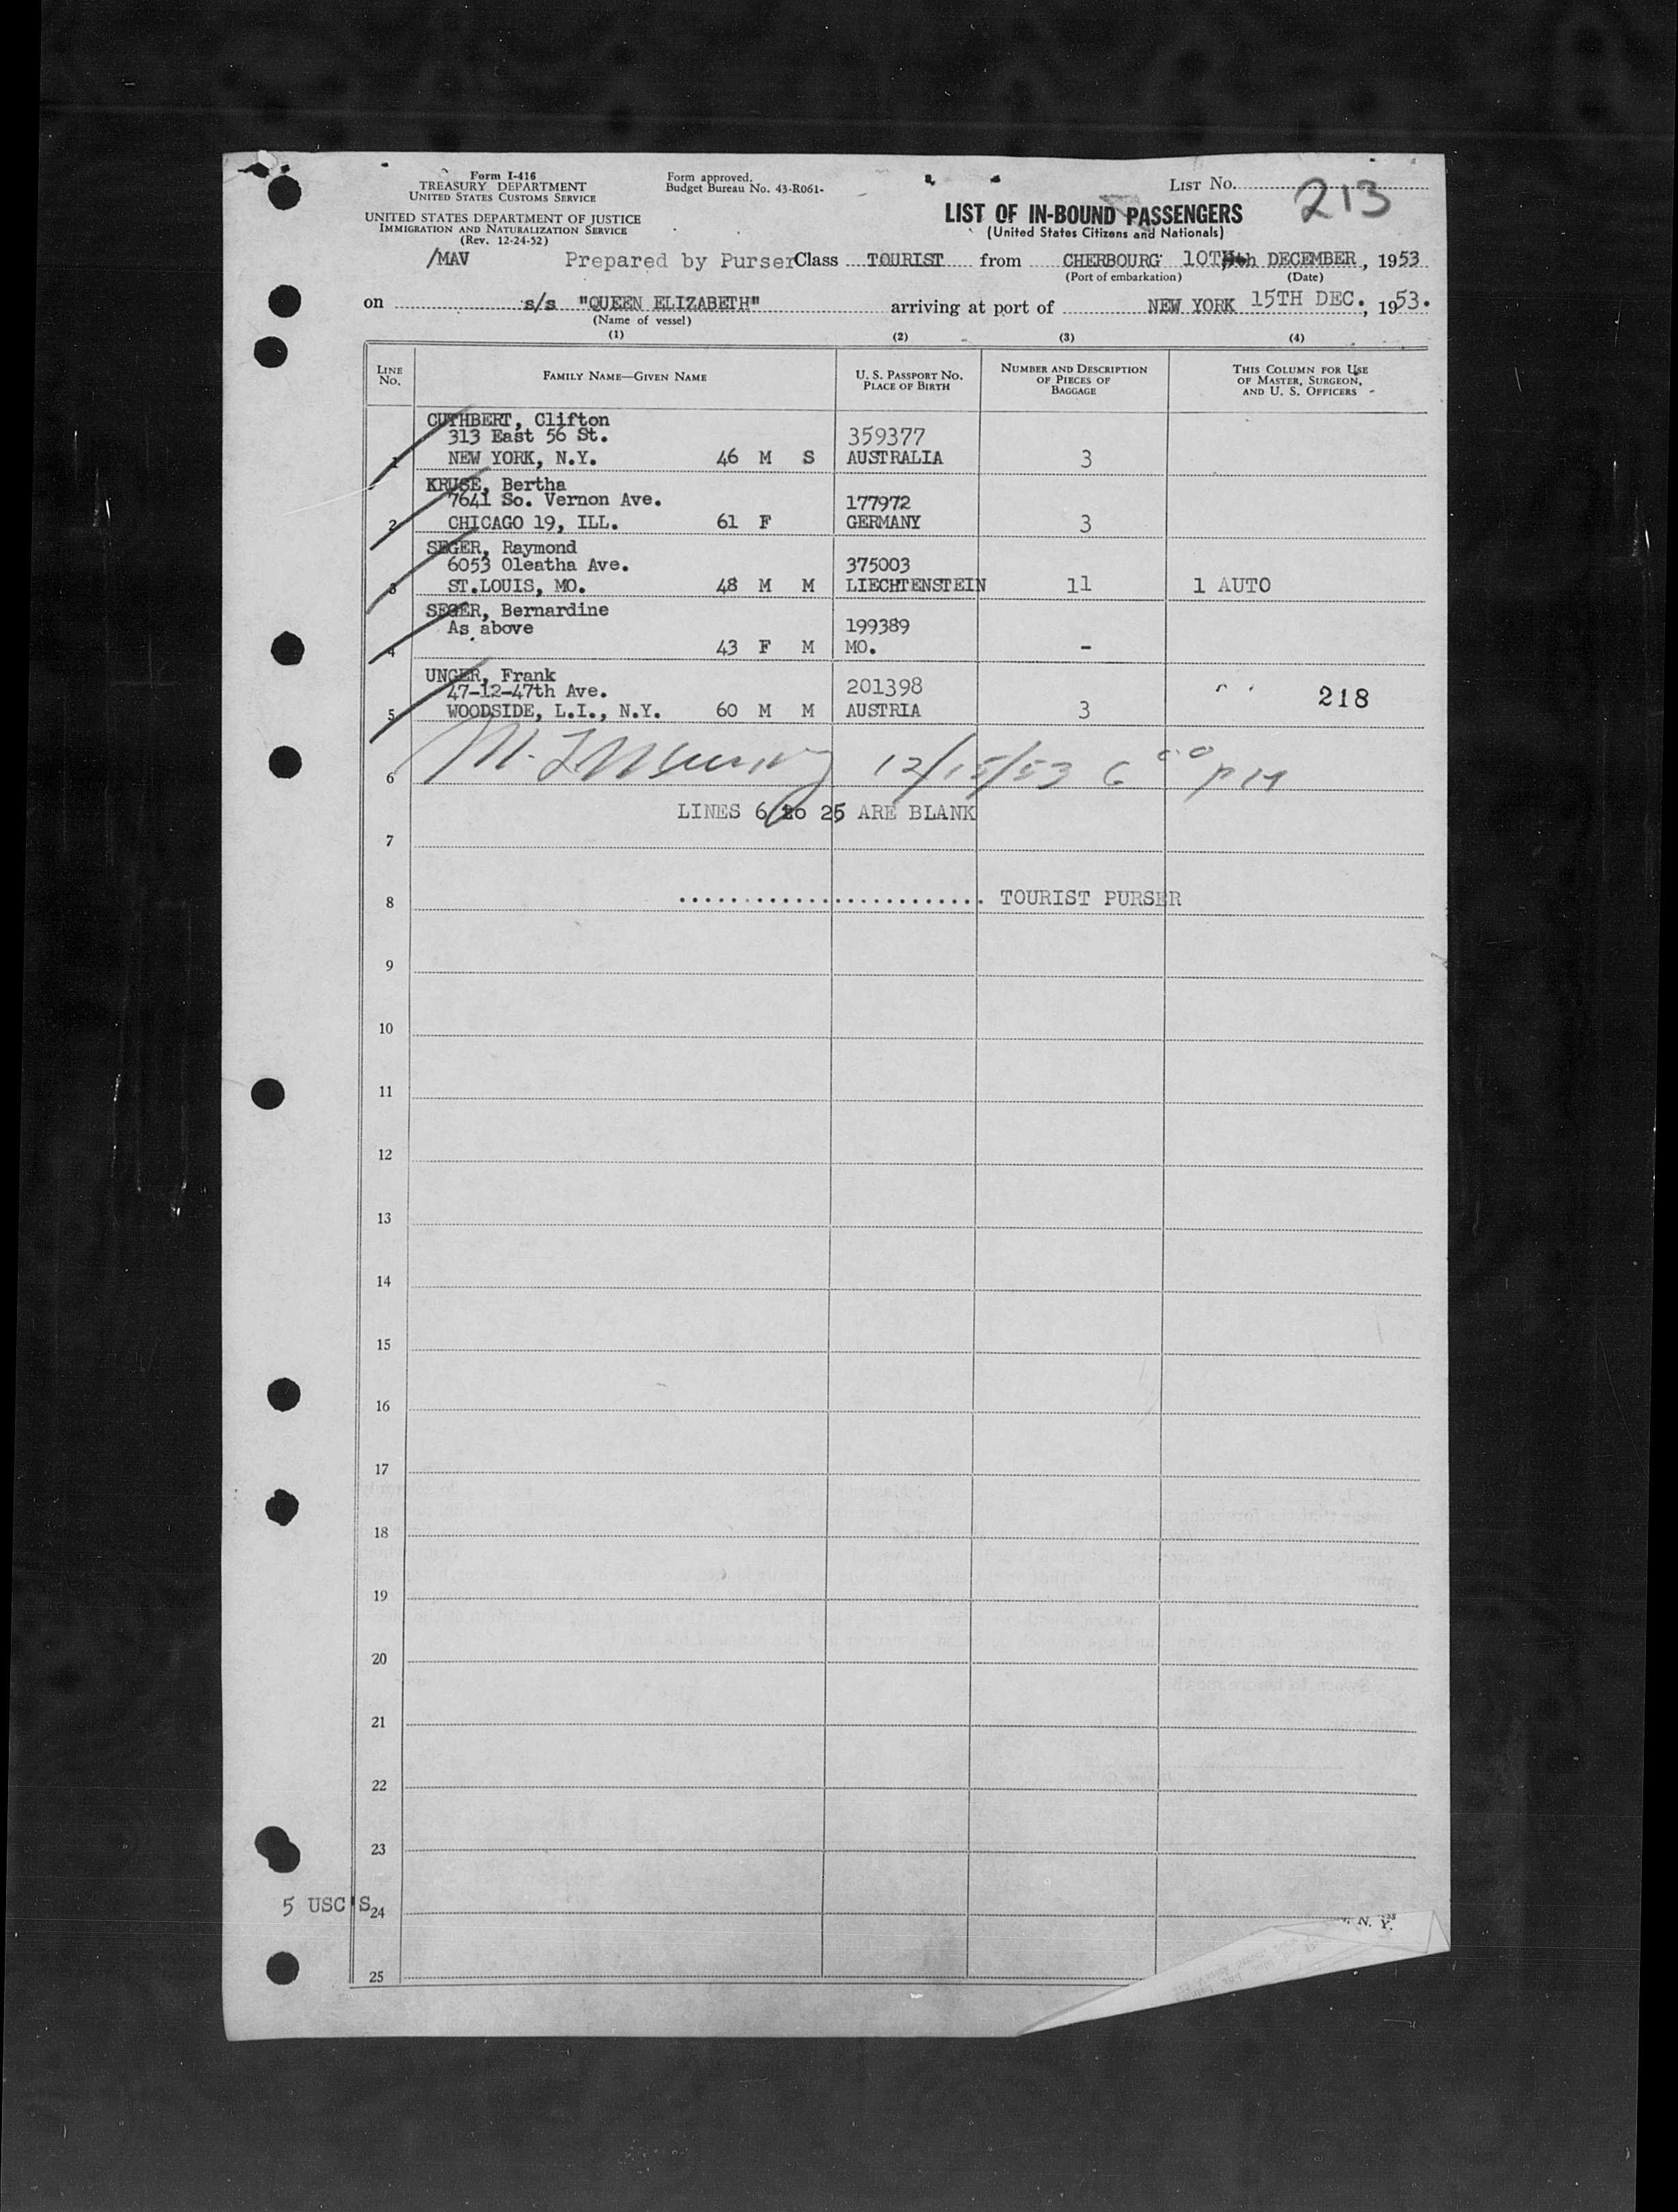 Form I-416
TREASURY DEPARTMENT
UNITED STATES CUSTOMS SERVICE
UNITED STATES DEPARTMENT OF JUSTICE
IMMIGRATION AND NATURALIZATION SERVICE
(Rev. 12-24-52)
Form approved.
Budget Bureau No. 43-R061-
LIST No. 213
LIST OF IN-BOUND PASSENGERS
(United States Citizens and Nationals)
/MAV Prepared by Purser Class TOURIST from CHERBOURG 10TH DECEMBER, 1953
(Port of embarkation) (Date)
on s/s "QUEEN ELIZABETH" arriving at port of NEW YORK 15TH DEC., 1953.
(Name of vessel)
(1) (2) (3) (4)
LINE No.
FAMILY NAME—GIVEN NAME
U. S. PASSPORT NO.
PLACE OF BIRTH
NUMBER AND DESCRIPTION
OF PIECES OF
BAGGAGE
THIS COLUMN FOR USE
OF MASTER, SURGEON,
AND U. S. OFFICERS
CUTHBERT, Clifton
313 East 56 St. 359377
1 NEW YORK, N.Y. 46 M S AUSTRALIA 3
KRUSE, Bertha
7641 So. Vernon Ave. 177972
2 CHICAGO 19, ILL. 61 F GERMANY 3
SEGER, Raymond
6053 Oleatha Ave. 375003
3 ST.LOUIS, MO. 48 M M LIECHTENSTEIN 11 1 AUTO
SEGER, Bernardine
As above 199389
4 43 F M MO. -
UNGER, Frank
47-12-47th Ave. 201398 218
5 WOODSIDE, L.I., N.Y. 60 M M AUSTRIA 3
6 12/15/53 6 00 PM
LINES 6 to 25 ARE BLANK
7
8 ........................ TOURIST PURSER
9
10
11
12
13
14
15
16
17
18
19
20
21
22
23
5 USC'S 24
N. Y.
25